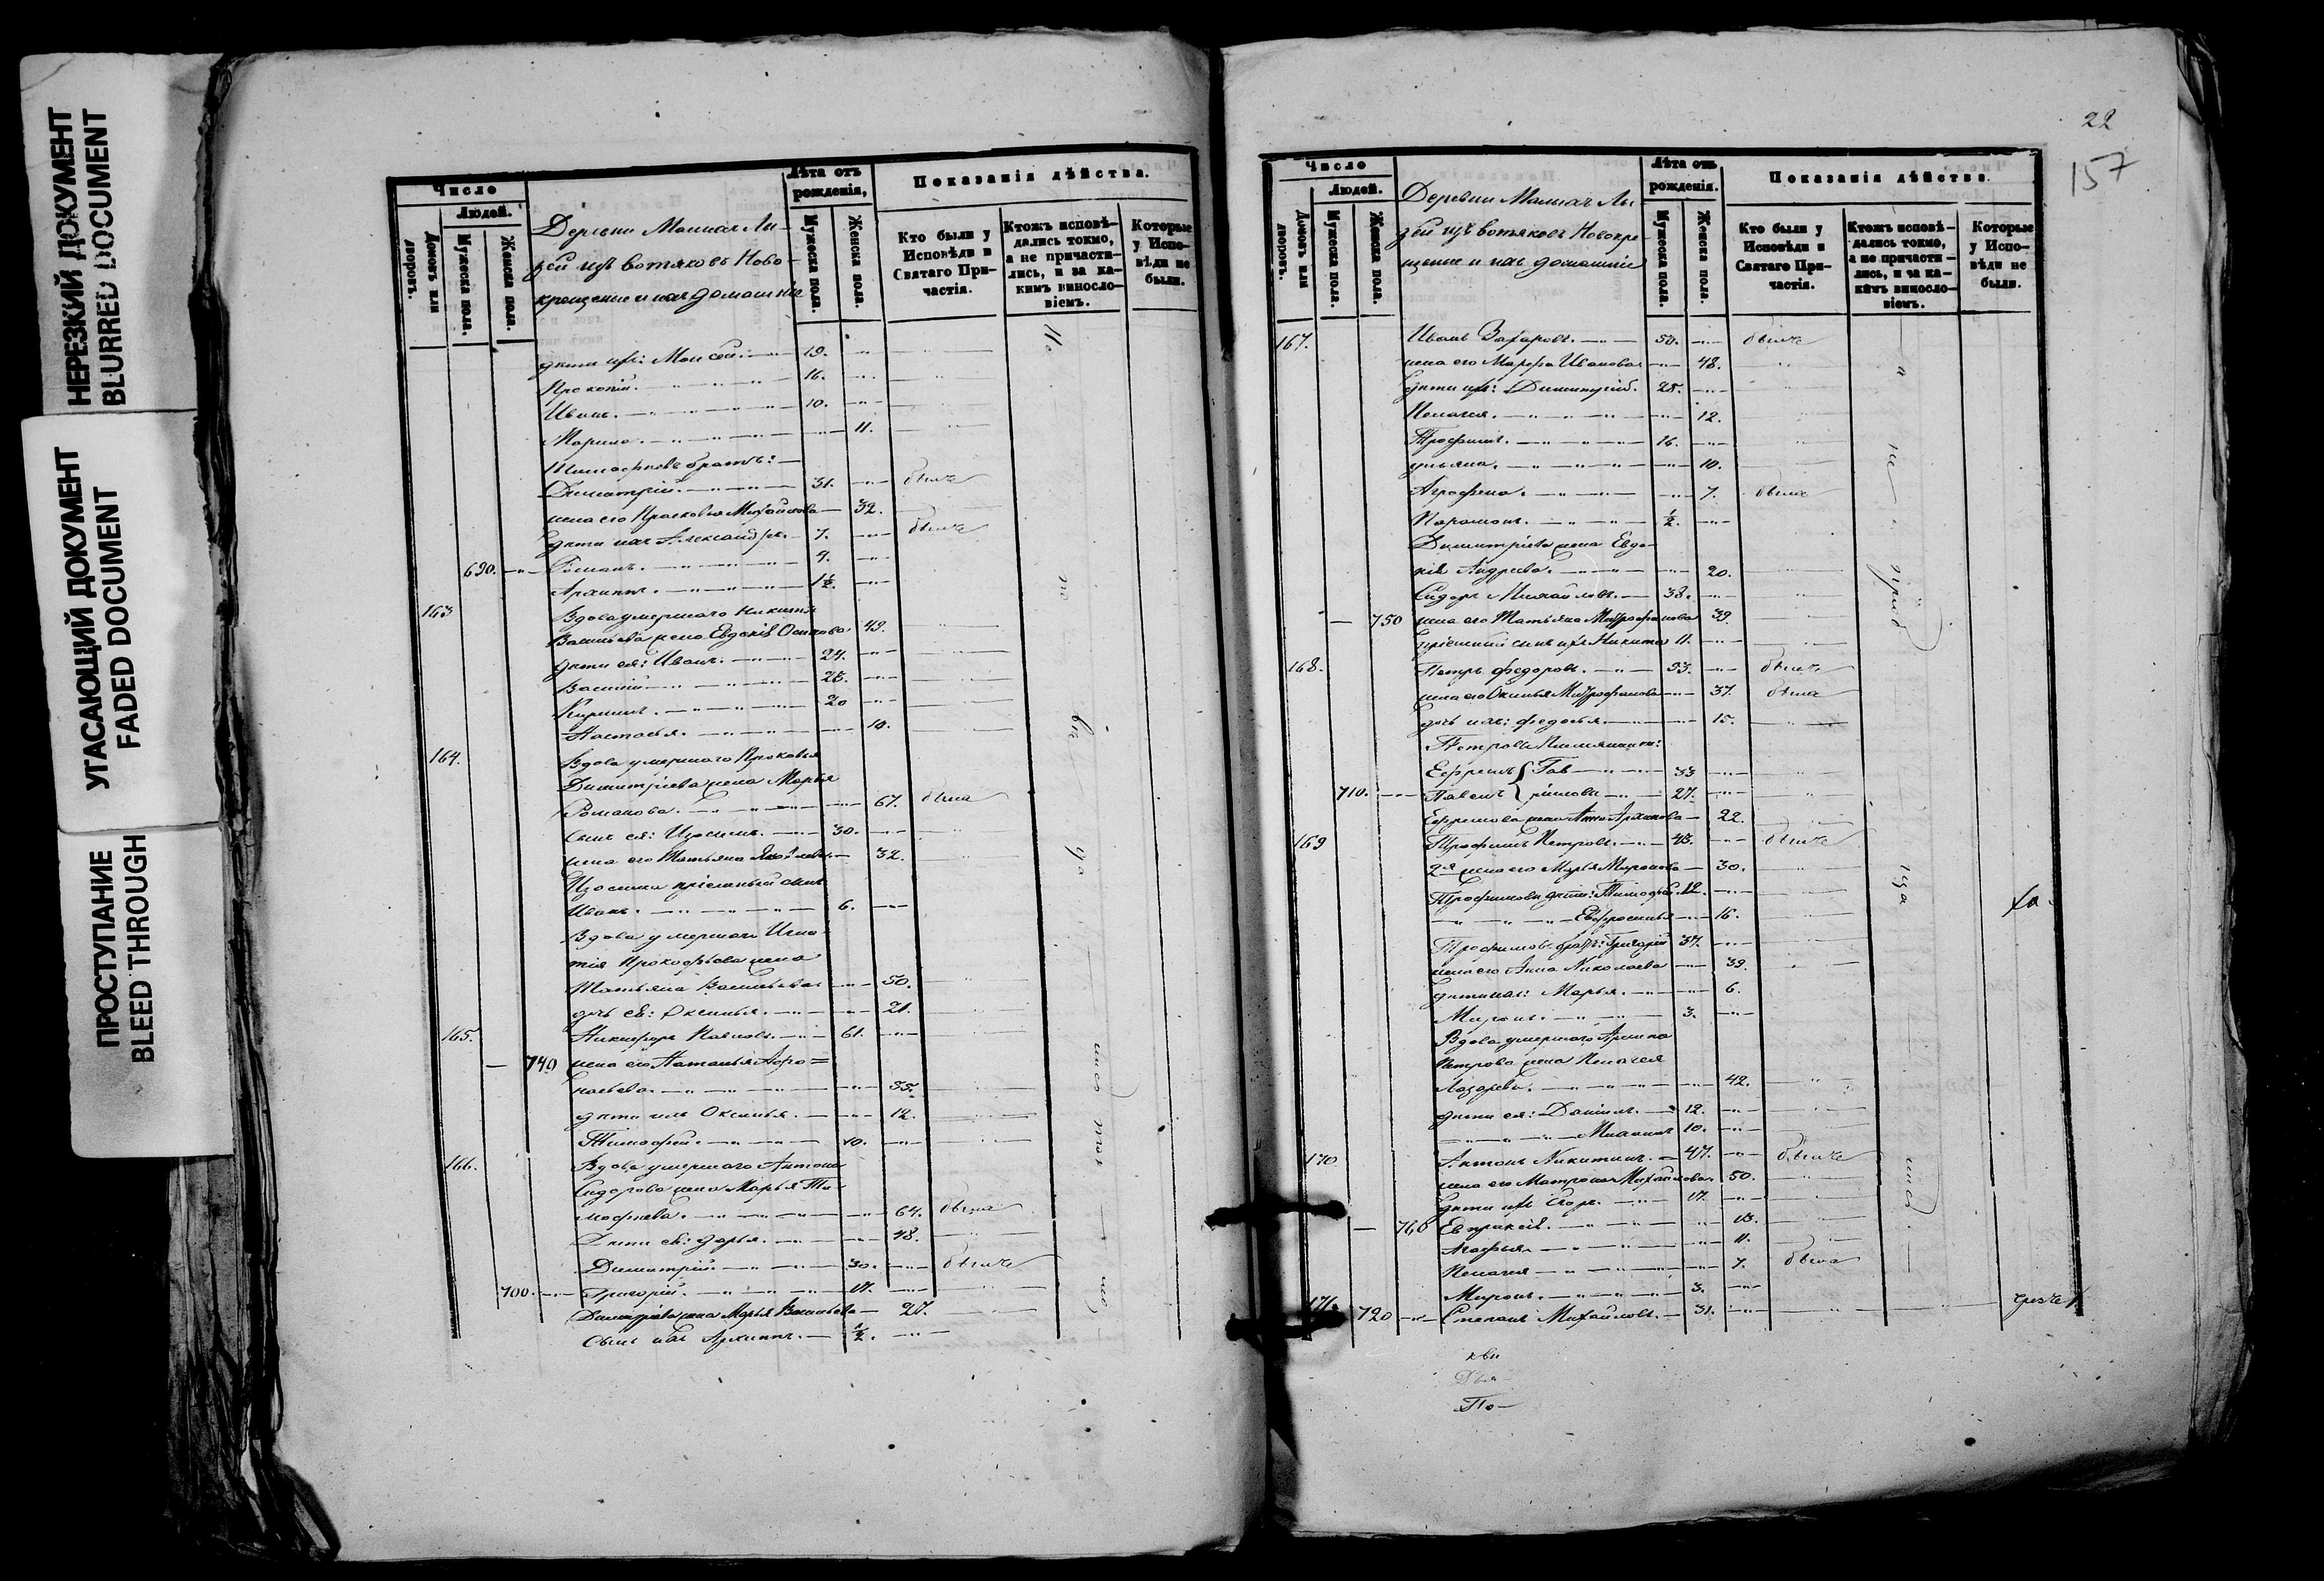 НЕРЕЗКИЙ ДОКУМЕНТ
BLURRED DOCUMENT
УГАСАЮЩИЙ ДОКУМЕНТ
FADED DOCUMENT
ПРОСТУПАНИЕ
BLEED THROUGH
Число
Людей.
Домовъ или дворовъ.
Мужеска пола.
Женска пола.
Деревни
зей изъ вотяковъ Ново-
крещение и ихъ домашніе
Лѣта отъ рожденія,
Мужеска пола.
Женска пола.
Показанія дѣйства.
Кто были у Исповѣди и Святаго При-частія.
Ктожъ исповѣ-дались токмо, а не причасти-лись, и за ка-кимъ винносло-віемъ.
Которые у Испо-вѣди не были.
дѣти ихъ: Моисей. 19.
Прокопій. 16.
Иванъ. 10.
Марина. 11.
братъ:
Димитрій. 31. были
жена его Прасковья Михайлова 32.
дѣти ихъ Александръ. 7. были
690. Романъ. 4.
Архиппъ. 1½.
163 Вдова умершаго Никиты
Васильева жена Евдокія Осипова 49.
дѣти ея: Иванъ. 24.
Василій 25.
Кириллъ. 20
Настасья. 10.
164. Вдова умершаго Прокопья
Димитріева жена Марья
Романова. 67. была
сынъ ея: Изосимъ. 30.
жена его Татьяна 32.
Изосима пріемный сынъ
Иванъ. 6.
Вдова умершаго Игна-
тія Прокофьева жена
Татьяна Васильева 50.
дочь ея: Оксинья. 21.
165. Никифоръ 61.
740 жена его Наталья Афо=
насьева. 55.
дѣти ихъ Оксинья. 12.
Тимофей. 10.
166. Вдова умершаго Антона
Сидорова жена Марья Ти-
мофеева. 64. была
Дѣти ея: Дарья. 48.
Димитрій 30. были
700. Григорій. 17.
Димитріева жена Марья Васильева 27.
сынъ ихъ Архиппъ. ½.
22
157
Число
Людей.
Домовъ или дворовъ.
Мужеска пола.
Женска пола.
Деревни
зей изъ вотяковъ Новокре-
щение и ихъ домашніе
Лѣта отъ рожденія.
Мужеска пола.
Женска пола.
Показанія дѣйства.
Кто были у Исповѣди и Святаго При-частія.
Ктожъ исповѣ-дались токмо, а не причасти-лись, и за ка-кимъ винносло-віемъ.
Которые у Испо-вѣди не были.
167. Иванъ Захаровъ. 50. были
жена его Марфа Иванова 48.
дѣти ихъ: Димитрій. 25.
Пелагея. 12.
Трофимъ. 16.
Ульяна. 10.
Аграфена. 7. была
Парамонъ. ½.
Димитріева жена Евдо-
кія Андреева. 20.
Сидоръ Михайловъ. 38.
750 жена его Татьяна Митрофанова 39.
пріемный сынъ ихъ Никита 11.
168. Петръ Федоровъ. 93. были
жена его Оксинья Митрофанова 37. была
дочь ихъ: Федосья. 15.
Петровы племянники:
Ефремъ Гав- 33
710. Павелъ риловы 27.
Ефремова жена Анна Архипова 22.
169 Трофимъ Петровъ. 43. были
2я жена его Марья Миронова 30.
Трофимовы дѣти: Тимофей. 12.
Евфросинья 16.
Трофимовъ братъ: Григорій 37.
жена его Анна Николаева 39.
дѣти ихъ: Марья. 6.
Миронъ. 3.
Вдова умершаго Архипа
Петрова жена Пелагея
Лазарева. 42.
дѣти ея: Даніилъ. 12.
Михаилъ 10.
170 Антонъ Никитинъ. 47. были
жена его Матрона Михайлова 50.
дѣти ихъ Егоръ. 17.
760 Евпраксія. 13.
Агафья 11.
Пелагея 7. была
Миронъ. 3.
171. 720 Степанъ Михайловъ. 31.
По-